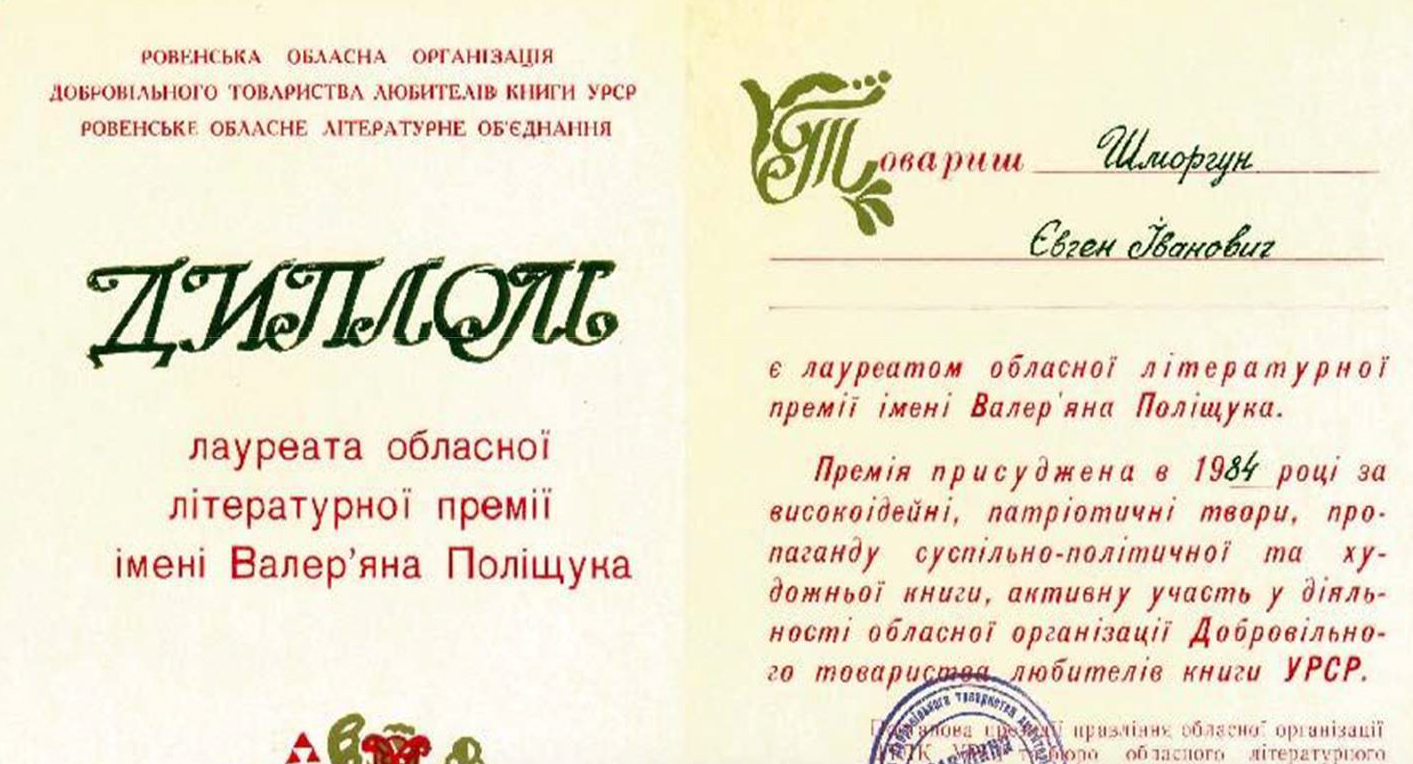 РОВЕНСЬКА ОБЛАСНА ОРГАНІЗАЦІЯ
ДОБРОВІЛЬНОГО ТОВАРИСТВА ЛЮБИТЕЛІВ КНИГИ УРСР
РОВЕНСЬКЕ ОБЛАСНЕ ЛІТЕРАТУРНЕ ОБ'ЄДНАННЯ
ДИПЛОМ
лауреата обласної
літературної премії
імені Валер'яна Поліщука
Товариш Шморгун
Євген Іванович
є лауреатом обласної літературної
премії імені Валер'яна Поліщука.
Премія присуджена в 1984 році за
високоідейні, патріотичні твори, про-
паганду суспільно-політичної та ху-
дожньої книги, активну участь у діяль-
ності обласної організації Добровільно-
го товариства любителів книги УРСР.
правління обласної організації
бюро обласного літературного